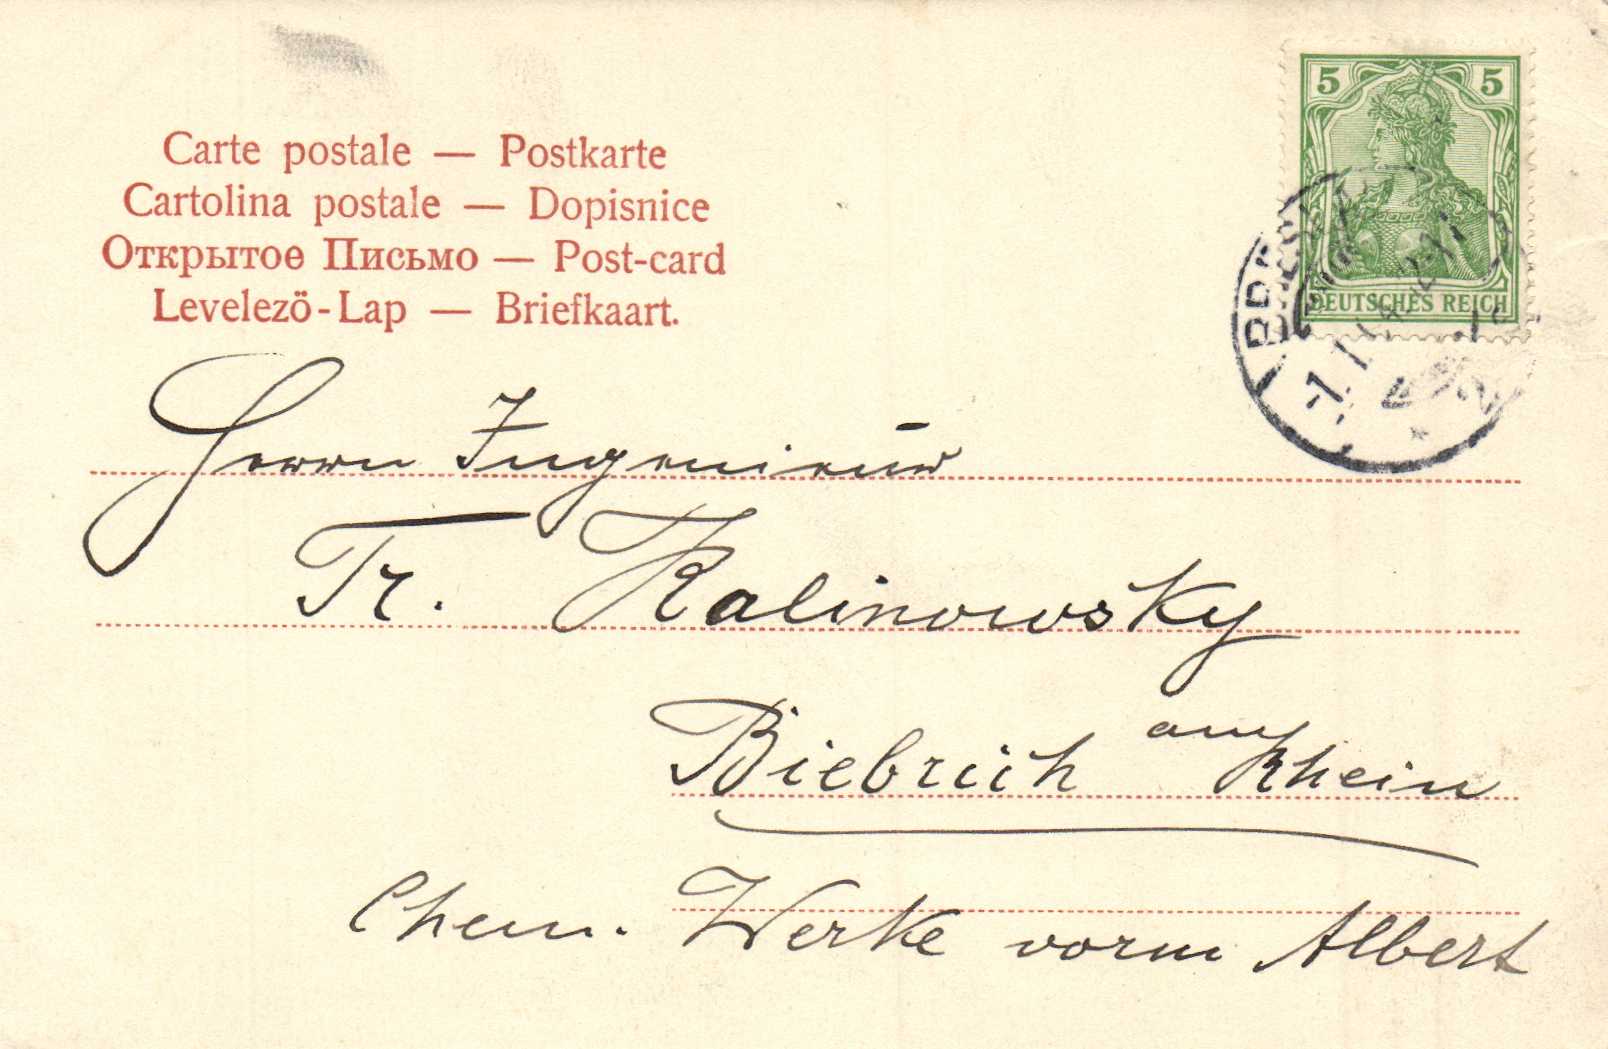 Carte postale — Postkarte
Cartolina postale — Dopisnice
Открытое Письмо — Post-card
Levelezö-Lap — Briefkaart.
5 5
DEUTSCHES REICH
Herrn Ingenieur
Fr. Kalinowsky
Biebrich am Rhein
Chem. Werke vorm Albert